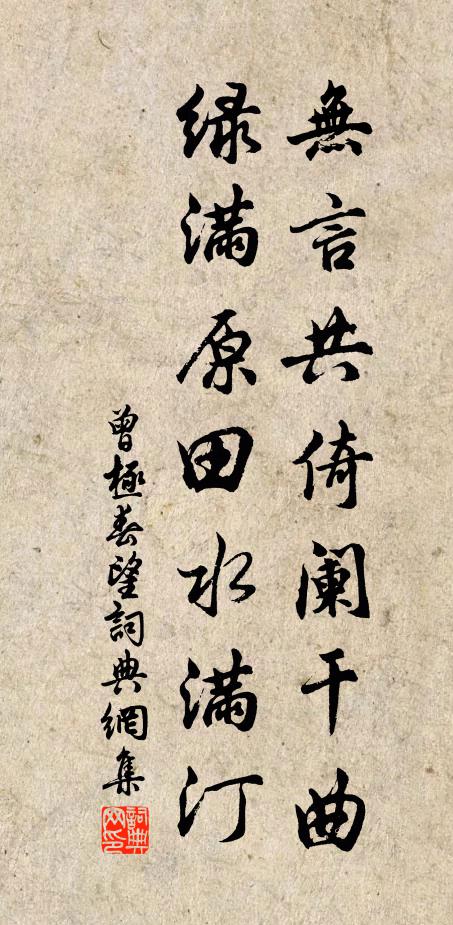 無言共倚阑干曲
緑满原田水满汀
曾極春望詞典網集
詞典网印